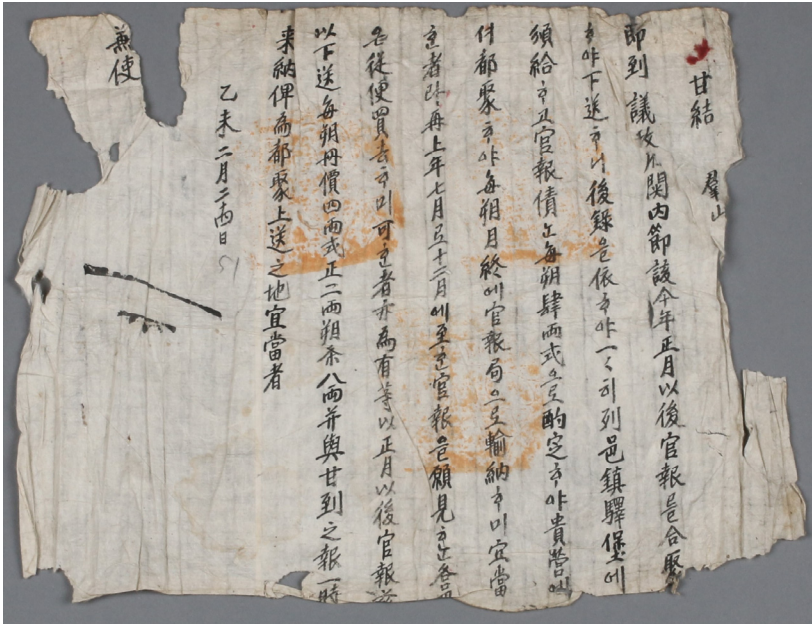 甘結 羣山
即到 議政府關內節該今年正月以後官報를合聚
ᄒᆞ야下送ᄒᆞ니後錄을依ᄒᆞ야一々히列邑鎭驛堡에
頒給ᄒᆞ고官報債ᄂᆞᆫ每朔肆兩式으로酌定ᄒᆞ야貴營에
付都聚ᄒᆞ야每朔月終에官報局으로輸納ᄒᆞ미宜當
ᄒᆞ者라再上年七月로十二月에至ᄒᆞᆫ官報을願見ᄒᆞᄂᆞᆫ各
은從便買去ᄒᆞ미可ᄒᆞ者亦爲有等以正月以後官報
以下送每朔冊價四兩式正二兩朔条八兩并與甘到之報一時
来納俾爲都聚上送之地宜當者
乙未二月二十四日
兼使